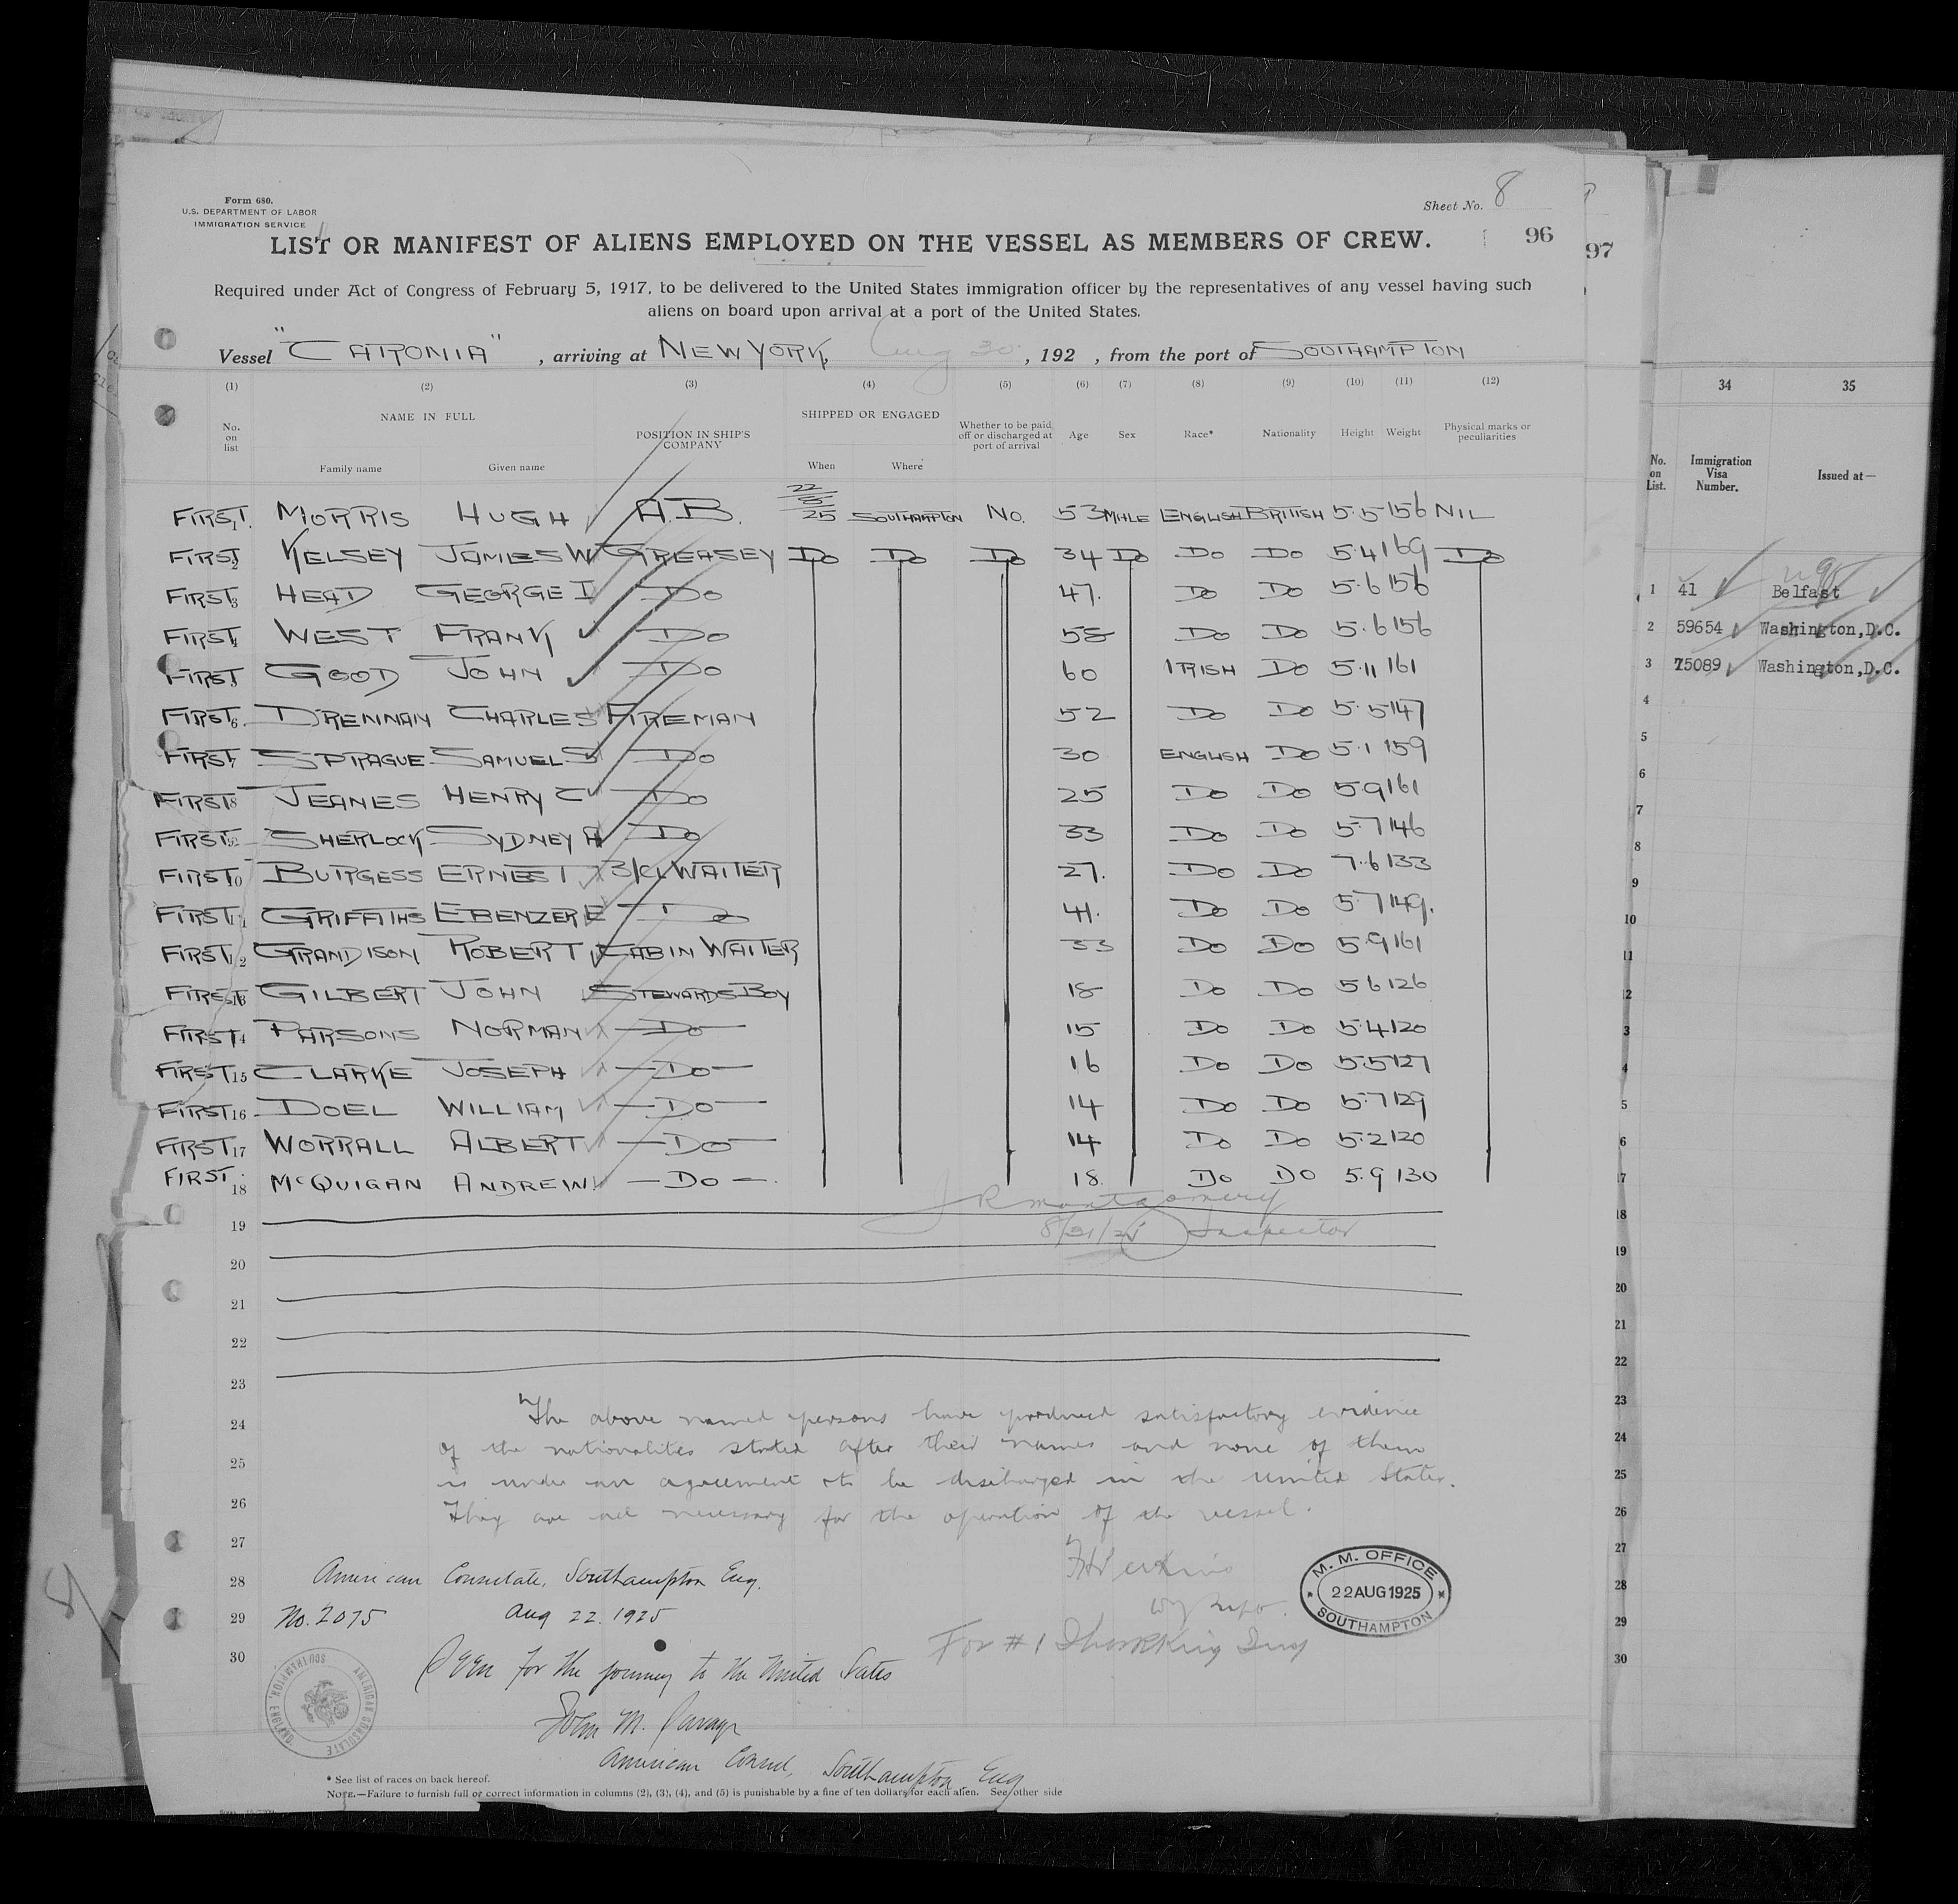 Form 680.
U.S. DEPARTMENT OF LABOR
IMMIGRATION SERVICE
Sheet No. 8
LIST OR MANIFEST OF ALIENS EMPLOYED ON THE VESSEL AS MEMBERS OF CREW.
96
97
Required under Act of Congress of February 5, 1917, to be delivered to the United States immigration officer by the representatives of any vessel having such
aliens on board upon arrival at a port of the United States.
Vessel "CARONIA", arriving at NEW YORK, Aug 30, 192 , from the port of SOUTHAMPTON
(1) (2) (3) (4) (5) (6) (7) (8) (9) (10) (11) (12)
No. on list
NAME IN FULL
Family name Given name
POSITION IN SHIP'S COMPANY
SHIPPED OR ENGAGED
When Where
Whether to be paid off or discharged at port of arrival
Age Sex Race* Nationality Height Weight Physical marks or peculiarities
FIRST 1 MORRIS HUGH A.B. 22/8/25 SOUTHAMPTON NO. 53 MALE ENGLISH BRITISH 5.5 156 NIL
FIRST 2 KELSEY JAMES W GREASEY DO DO DO 34 DO DO DO 5.4 169 DO
FIRST 3 HEAD GEORGE I DO 47. DO DO 5.6 156
FIRST 4 WEST FRANK DO 58 DO DO 5.6 156
FIRST 5 GOOD JOHN DO 60 IRISH DO 5.11 161
FIRST 6 DRENNAN CHARLES FIREMAN 52 DO DO 5.5 147
FIRST 7 SPRAGUE SAMUEL S DO 30 ENGLISH DO 5.1 159
FIRST 8 JEANES HENRY C DO 25 DO DO 5.9 161
FIRST 9 SHERLOCK SYDNEY A DO 33 DO DO 5.7 146
FIRST 10 BURGESS ERNEST 3/CL WAITER 27. DO DO 7.6 133
FIRST 11 GRIFFITHS EBENZER E DO 41. DO DO 5.7 149.
FIRST 12 GRANDISON ROBERT CABIN WAITER 33 DO DO 5.9 161
FIRST 13 GILBERT JOHN STEWARDS BOY 18 DO DO 5 6 126
FIRST 14 PARSONS NORMAN DO 15 DO DO 5.4 120
FIRST 15 CLARKE JOSEPH DO 16 DO DO 5.5 127
FIRST 16 DOEL WILLIAM DO 14 DO DO 5.7 129
FIRST 17 WORRALL ALBERT DO 14 DO DO 5.2 120
FIRST 18 McQUIGAN ANDREW DO 18. DO DO 5.9 130
J R Montgomery
8/31/25 Inspector
19
20
21
22
23
24
25
26
27
28
29
30
The above named persons have produced satisfactory evidence
of the nationalities stated after their names and none of them
is under an agreement to be discharged in the United States.
They are all necessary for the operation of the vessel.
American Consulate, Southampton Eng.
No. 2075 Aug 22. 1925
Seen for the journey to the United States
John M. Savage
American Consul, Southampton Eng
M. M. OFFICE
22 AUG 1925
SOUTHAMPTON
AMERICAN CONSULATE SOUTHAMPTON, ENGLAND.
* See list of races on back hereof.
NOTE.—Failure to furnish full or correct information in columns (2), (3), (4), and (5) is punishable by a fine of ten dollars for each alien. See other side
34 35
No. on List.
Immigration Visa Number.
Issued at—
1 41 Belfast
2 59654 Washington,D.C.
3 75089 Washington,D.C.
4
5
6
7
8
9
10
11
12
3
4
5
6
17
18
19
20
21
22
23
24
25
26
27
28
29
30